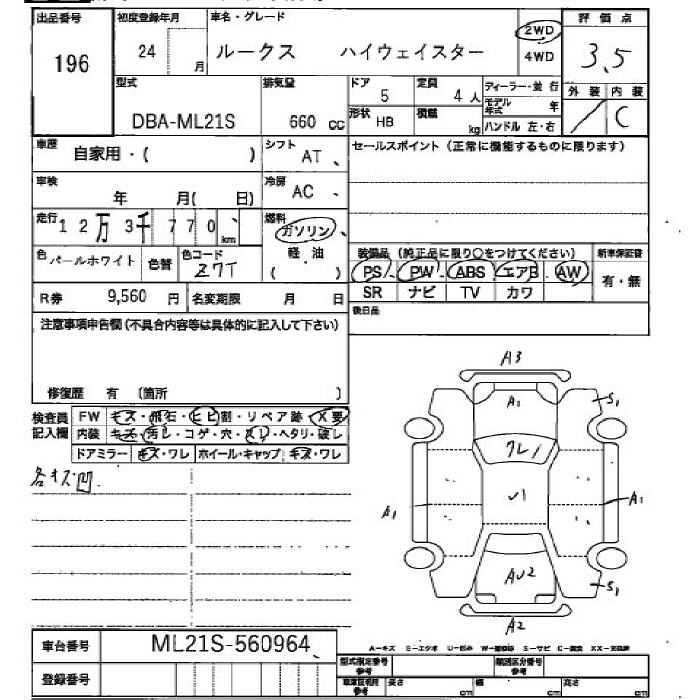 出品番号 初度登録年月 車名・グレード 2WD 評価点
196 24 月 ルークス ハイウェイスター 4WD 3.5
型式 排気量 ドア 5 定員 4人 ディーラー・並行 外装 内装
DBA-ML21S 660 cc 形状 HB 積載 kg モデル年式 年 / C
ハンドル 左・右
車歴 自家用・( ) シフト AT、 セールスポイント(正常に機能するものに限ります)
車検 年 月( 日) 冷房 AC、
走行 12万3千770、km 燃料 ガソリン
軽・油
( )
色 パールホワイト 色替 色コード Z7T 装備品(純正品に限り○をつけてください) 新車保証書
PS PW ABS エアB AW 有・無
R券 9,560 円 名変期限 月 日 SR ナビ TV カワ
注意事項申告欄(不具合内容等は具体的に記入して下さい) 後日品
修復歴 有 〔箇所 〕
検査員記入欄 FW キズ・飛石・ヒビ割・リペア跡・X要
内装 キズ・汚レ・コゲ・穴・スレ・ヘタリ・破レ
ドアミラー キズ・ワレ ホイール・キャップ キズ・ワレ
各キズ凹
A3
A1 S1
ワレ1
A1 U1 A1
AU2 S1
A2
車台番号 ML21S-560964、
A―キズ E―エクボ U―凹み W―補修跡 S―サビ C―腐食 XX―交換済
登録番号 型式指定番号参考 類別区分番号参考
車庫証明用参考 長さ cm 幅 cm 高さ cm